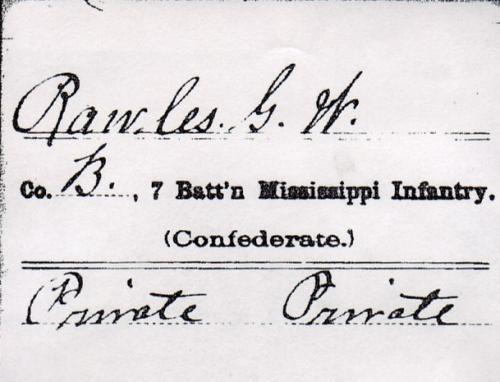 Rawles. G. W.
Co. B., 7 Batt'n Mississippi Infantry.
(Confederate.)
Private Private